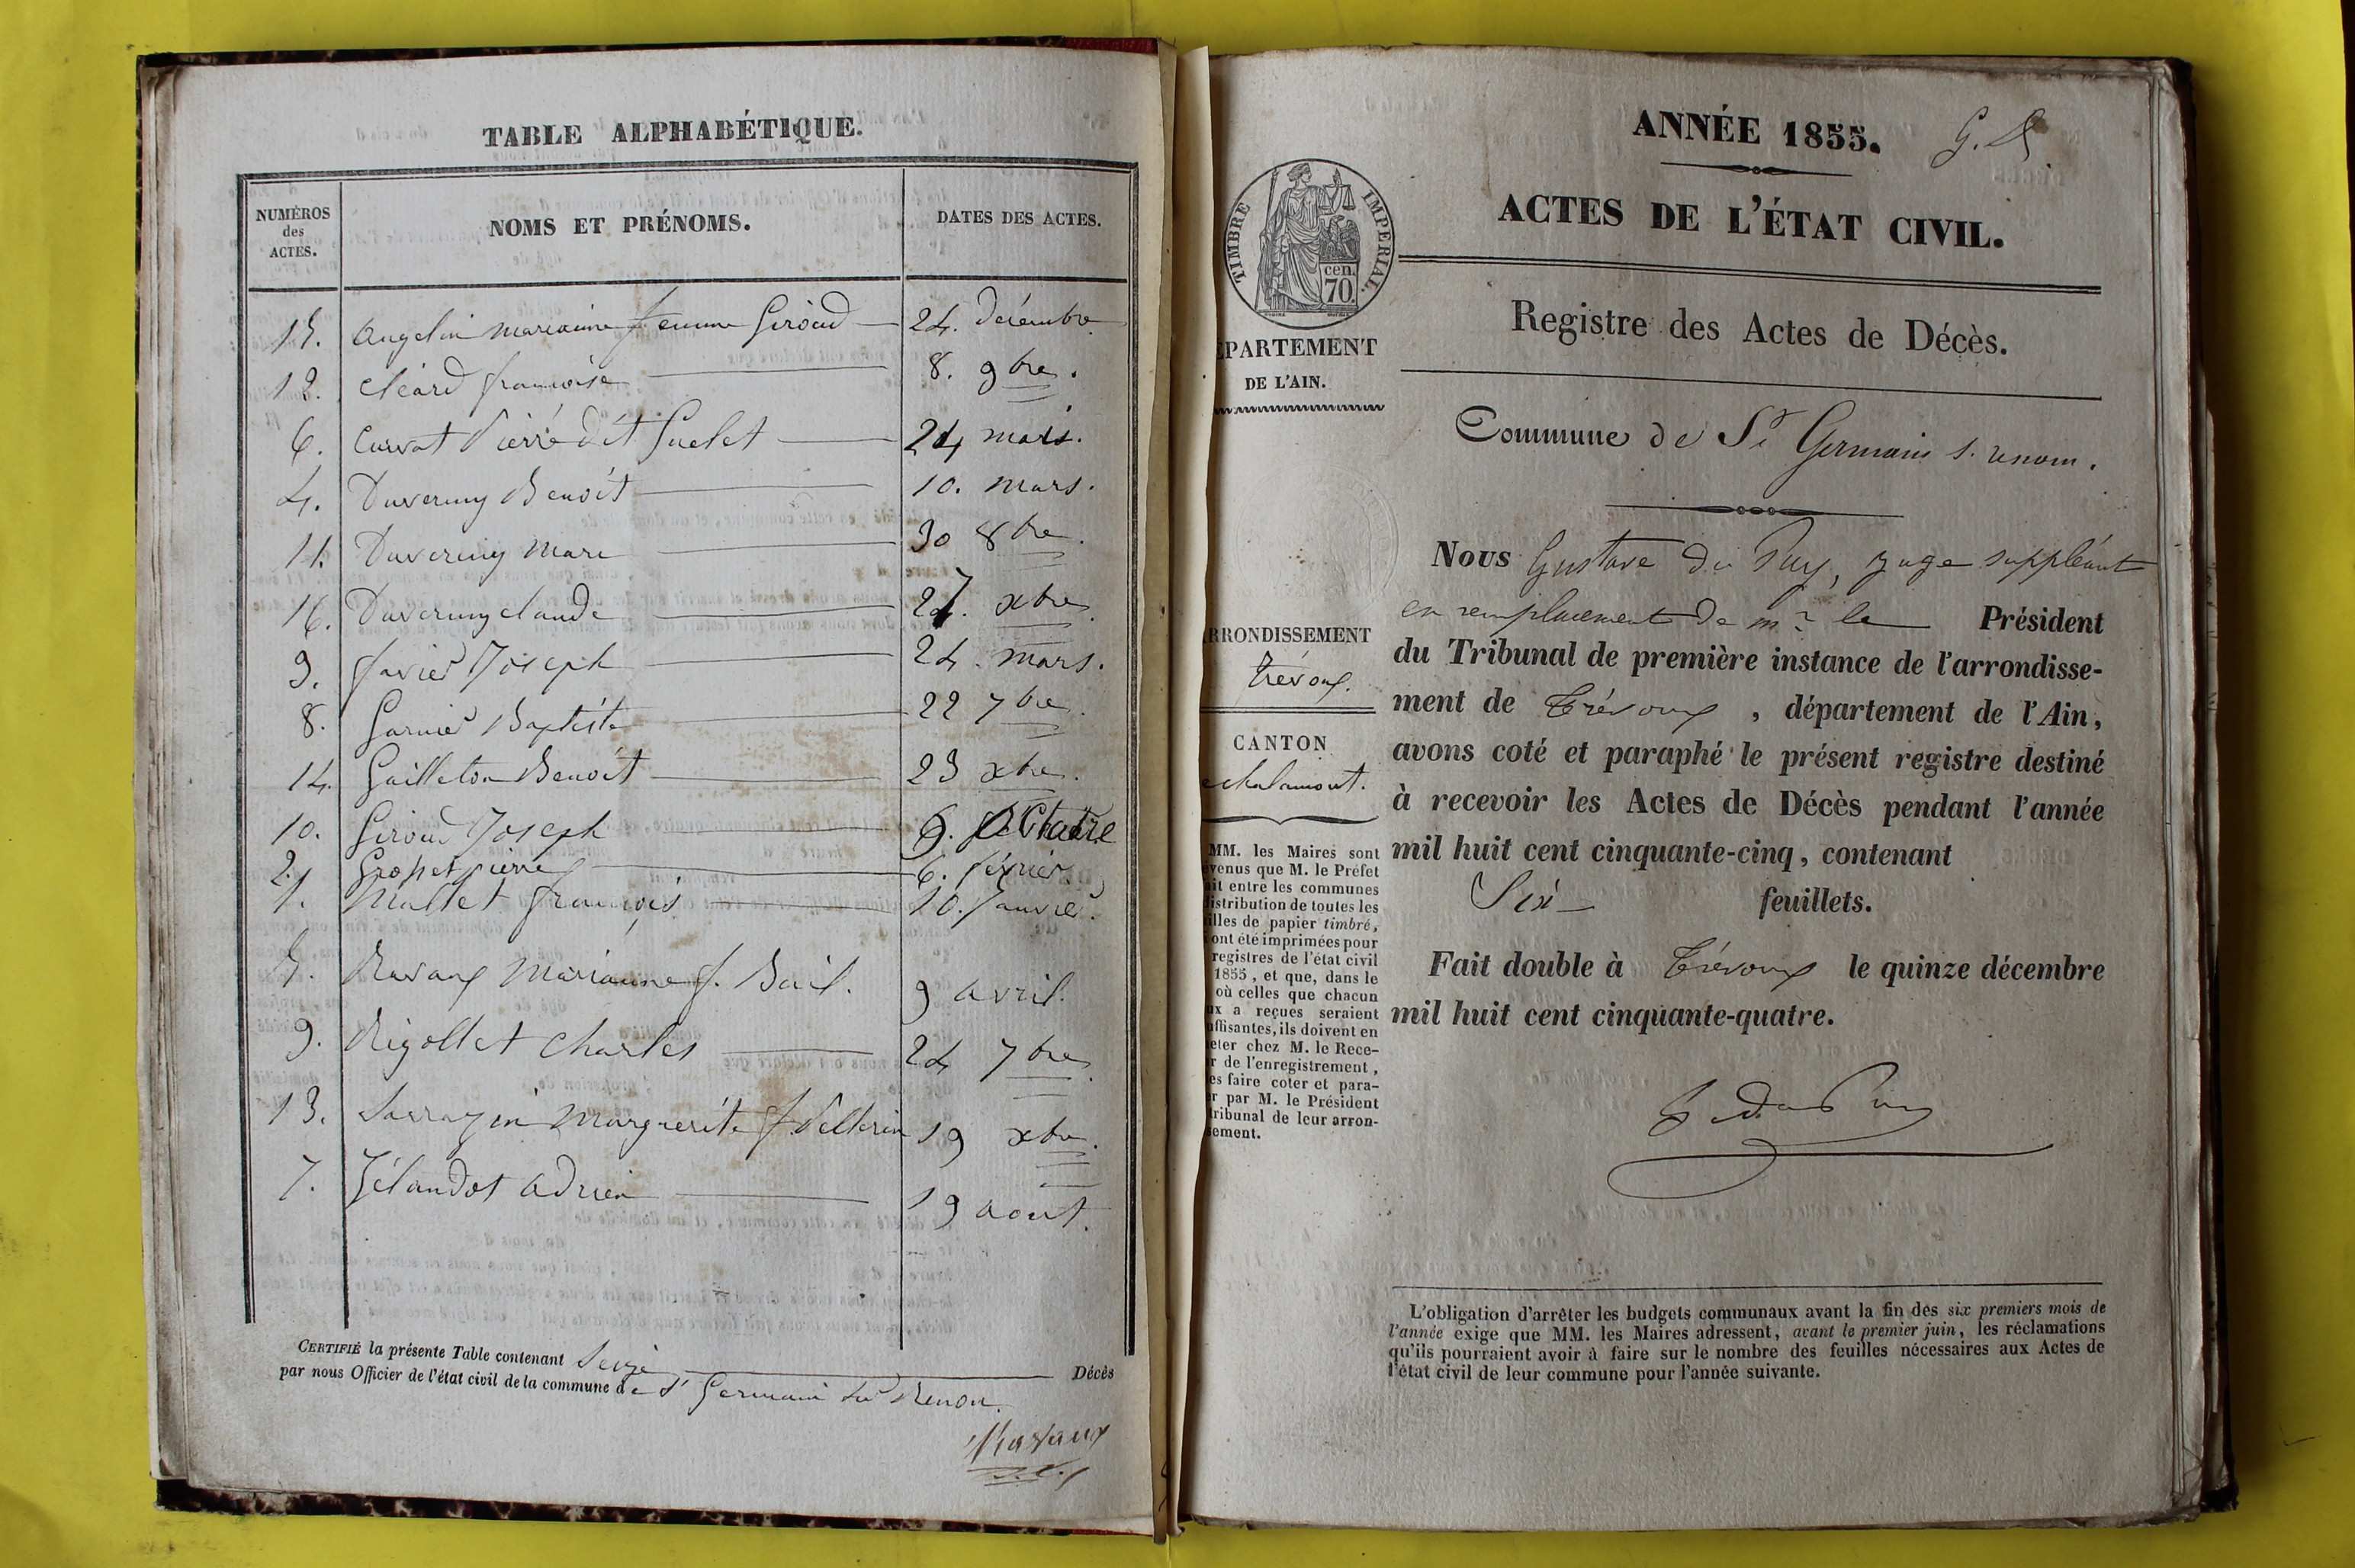 TABLE ALPHABÉTIQUE.
NUMÉROS des ACTES.
NOMS ET PRÉNOMS.
DATES DES ACTES.
15. Angelin marianne femme Giroud 24. Décembre
12. Cléard françoise 8. 9bre.
6. Curvat Pierre dit Guelet 24 mars.
4. Duverny Benoit 10. mars.
11. Duverny Marc 30 8bre.
16. Duverny claude 27. xbre.
3. favier Joseph 24. mars.
8. Garnier Baptiste 22 7bre.
14. Guilleton Benoit 23 xbre.
10. Giroud Joseph 9. Octobre
2. pierre 6. février.
1. Mallet françois 10. Janvier.
5. Ravaux Marianne f. Bail. 9 avril.
9. Rigollet Charles 24 7bre.
13. Sarrazin Marguerite f. Pellerin 19 xbre.
7. Télandot adrien 19 aout.
CERTIFIÉ la présente Table contenant Seize Décès
par nous Officier de l'état civil de la commune de St Germain sur Renon.
Ravaux
ANNÉE 1855.
ACTES DE L'ÉTAT CIVIL.
TIMBRE IMPÉRIAL.
cen. 70.
Registre des Actes de Décès.
ÉPARTEMENT
DE L'AIN.
Commune de St Germain s. renom.
Nous Gustave du Puy, juge suppléant
en remplacement de mr le Président
du Tribunal de première instance de l'arrondisse-
ment de Trévoux, département de l'Ain,
avons coté et paraphé le présent registre destiné
à recevoir les Actes de Décès pendant l'année
mil huit cent cinquante-cinq, contenant
Six feuillets.
Fait double à Trévoux le quinze décembre
mil huit cent cinquante-quatre.
G. du Puy
RRONDISSEMENT
trévoux.
CANTON
chalamont.
MM. les Maires sont
venus que M. le Préfet
ait entre les communes
distribution de toutes les
illes de papier timbré,
ont été imprimées pour
registres de l'état civil
1855, et que, dans le
où celles que chacun
ux a reçues seraient
uffisantes, ils doivent en
eter chez M. le Rece-
r de l'enregistrement,
es faire coter et para-
r par M. le Président
ribunal de leur arron-
sement.
L'obligation d'arrêter les budgets communaux avant la fin des six premiers mois de
l'année exige que MM. les Maires adressent, avant le premier juin, les réclamations
qu'ils pourraient avoir à faire sur le nombre des feuilles nécessaires aux Actes de
l'état civil de leur commune pour l'année suivante.